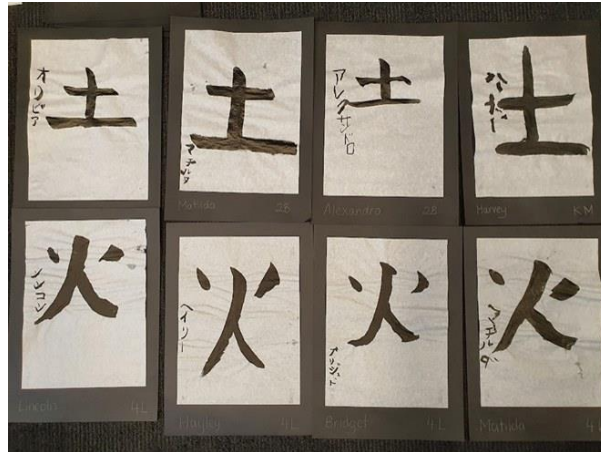 土
オリビア
土
マチルダ
Matilda 2B
土
アレクサンドロ
Alexandra 2B
土
ハービー
Harvey KM
火
リンコン
Lincoln 4L
火
ヘイリー
Hayley 4L
火
Bridget 4L
火
マチルダ
Matilda 4L